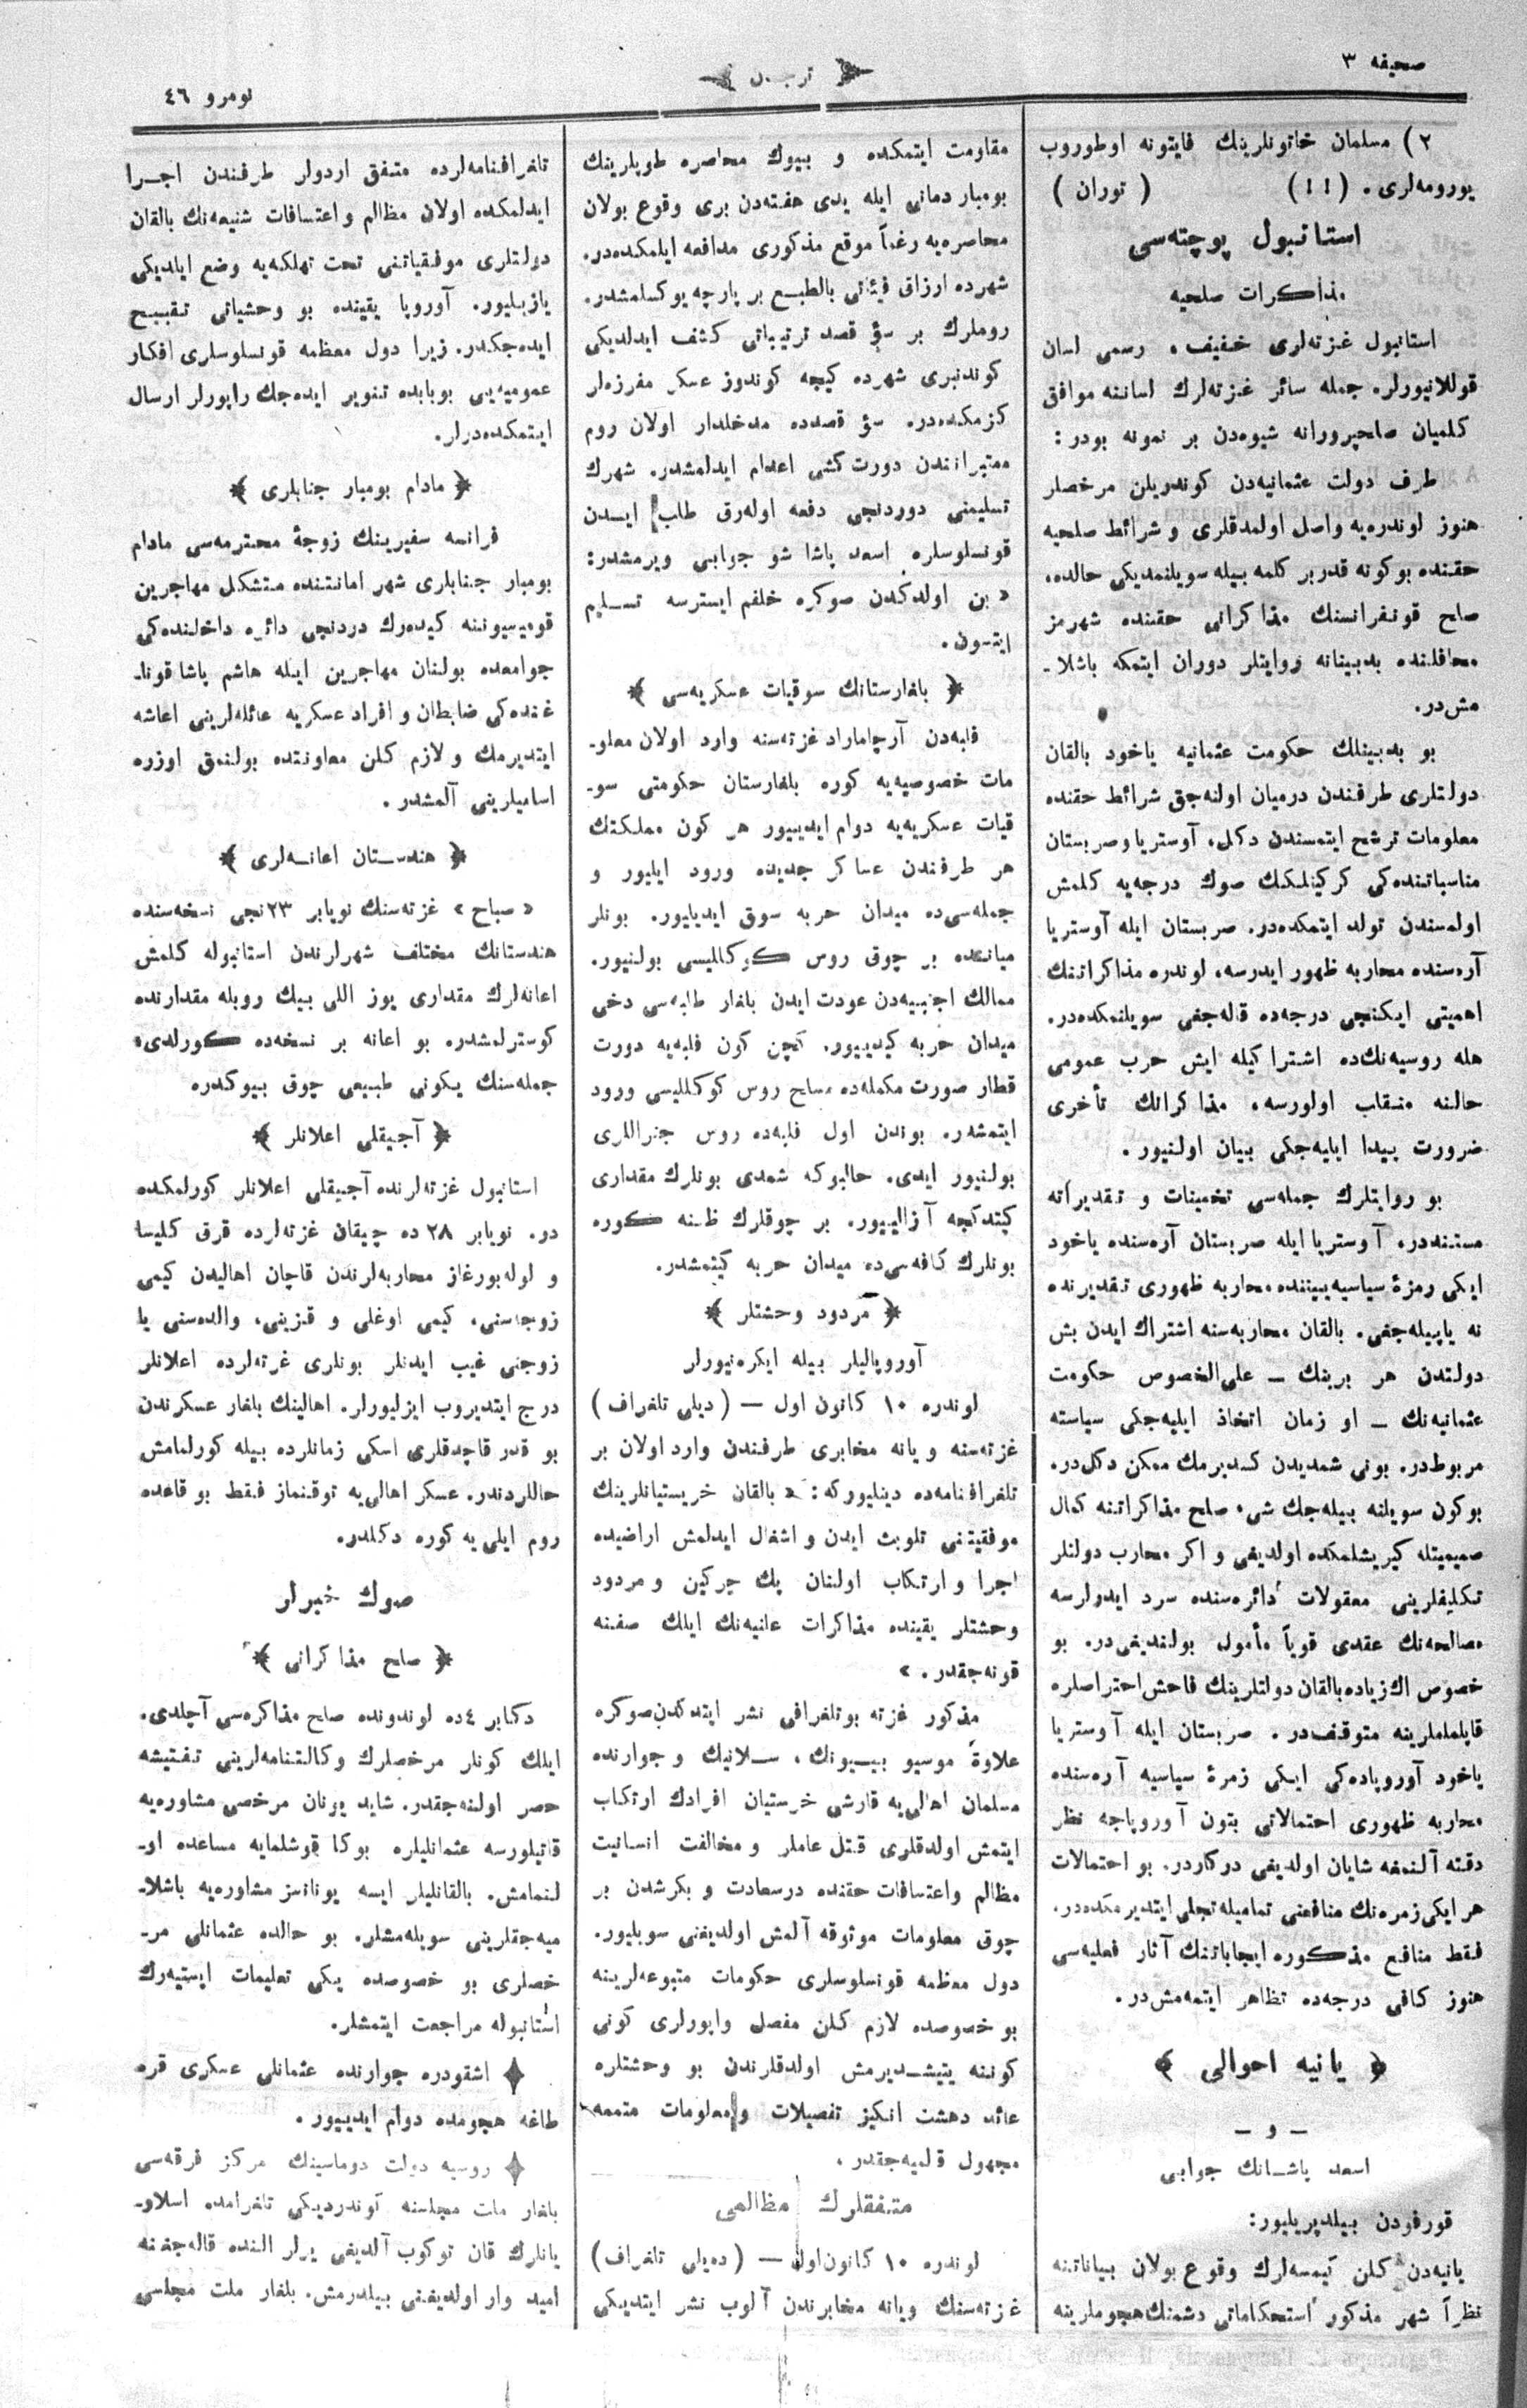 صحیفه ۳
ترجمان
نومرو ٤٦
۲) مسلمان خاتونلرینك فایتونه اوطوروب
یورومه‌لری. (!!) (توران)
استانبول پوچته‌سی
مذاکرات صلحیه
استانبول غزته‌لری خفیف، رسمی لسان
قوللانیورلر. جمله سائر غزته‌لرك لساننه موافق
کلمیان صلحپرورانه شیوه‌دن بر نمونه بودر:
طرف دولت عثمانیه‌دن کوندریلن مرخصلر
هنوز لوندره‌یه واصل اولمدقلری و شرائط صلحیه
حقنده بوکونه قدر بر کلمه بیله سویلنمدیکی حالده،
صلح قونفرانسنك مذاکراتی حقنده شهرمز
محافلنده بدبینانه روایتلر دوران ایتمکه باشلا-
مش‌در.
بو بدبینلك حکومت عثمانیه یاخود بالقان
دولتلری طرفندن درمیان اولنه‌جق شرائط حقنده
معلومات ترشح ایتمسندن دکل، آوستریا وصربستان
مناسباتنده‌کی کرکینلکك صوك درجه‌یه کلمش
اولمسندن تولد ایتمکده‌در. صربستان ایله آوستریا
آره‌سنده محاربه ظهور ایدرسه، لوندره مذاکراتنك
اهمیتی ایکنجی درجه‌ده قاله‌جغی سویلنمکده‌در.
هله روسیه‌نك‌ده اشتراکیله ایش حرب عمومی
حالنه منقلب اولورسه، مذاکراتك تأخری
ضرورت پیدا ایلیه‌جکی بیان اولنیور.
بو روایتلرك جمله‌سی تخمینات و تقدیراته
مستنددر. آوستریا ایله صربستان آره‌سنده یاخود
ایکی زمرۀ سیاسیه بیننده محاربه ظهوری تقدیرنده
نه یاپیله‌جغی. بالقان محاربه‌سنه اشتراك ایدن بش
دولتدن هر برینك — علی‌الخصوص حکومت
عثمانیه‌نك — او زمان اتخاذ ایلیه‌جکی سیاسته
مربوط‌در. بونی شمدیدن کسدیرمك ممکن دکل‌در.
بوکون سویلنه بیله‌جك شیء صلح مذاکراتنه کمال
صمیمیتله کیریشلمکده اولدیغی و اکر محارب دولتلر
تکلیفلرینی معقولات دائره‌سنده سرد ایدولرسه
مصالحه‌نك عقدی قویاً مأمول بولندیغی‌در. بو
خصوص اك‌زیاده بالقان دولتلرینك فاحش احتراصلره
قاپلماملرینه متوقف‌در. صربستان ایله آوستریا
یاخود آوروپاده‌کی ایکی زمرۀ سیاسیه آره‌سنده
محاربه ظهوری احتمالاتی بتون آوروپاجه نظر
دقته آلنمغه شایان اولدیغی درکاردر. بو احتمالات
هر ایکی زمره‌نك منافعنی تمامیله تجلی ایتدیرمکده‌در.
فقط منافع مذکوره ایجاباتنك آثار فعلیه‌سی
هنوز کافی درجه‌ده تظاهر ایتمه‌مش‌در.
﴿ یانیه احوالی ﴾
— و —
اسعد پاشانك جوابی
قورفودن بیلدیریلیور:
یانیه‌دن کلن کیمسه‌لرك وقوع بولان بیاناتنه
نظراً شهر مذکور استحکاماتی دشمنك هجوملرینه
مقاومت ایتمکده و بیوك محاصره طوپلرینك
بومباردمانی ایله یدی هفته‌دن بری وقوع بولان
محاصره‌یه رغماً موقع مذکوری مدافعه ایلمکده‌در.
شهرده ارزاق فیئاتی بالطبع بر پارچه یوکسلمشدر.
روملرك بر سؤ قصد ترتیباتی کشف ایدلدیکی
کوندنبری شهرده کیجه کوندوز عسکر مفرزه‌لر
کزمکده‌در. سؤ قصدده مدخلدار اولان روم
معتبرانندن دورت کشی اعدام ایدلمشدر. شهرك
تسلیمنی دوردنجی دفعه اوله‌رق طلب ایدن
قونسلوسلره اسعد پاشا شو جوابی ویرمشدر:
«بن اولدکدن صوکره خلفم ایسترسه تسلیم
ایتسون.
﴿ بلغارستانك سوقیات عسکریه‌سی ﴾
فلبه‌دن آرچاماراد غزته‌سنه وارد اولان معلو-
مات خصوصیه‌یه کوره بلغارستان حکومتی سو-
قیات عسکریه‌یه دوام ایدییور هر کون مملکتك
هر طرفندن عساکر جدیده ورود ایلیور و
جمله‌سی‌ده میدان حربه سوق ایدیلیور. بونلر
میاننده بر چوق روس کوکللیسی بولنیور.
ممالك اجنبیه‌دن عودت ایدن بلغار طلبه‌سی دخی
میدان حربه کیدییور. کچن کون فلبه‌یه دورت
قطار صورت مکمله‌ده مسلح روس کوکللیسی ورود
ایتمشدر. بوندن اول فلبه‌ده روس جنراللری
بولنیور ایدی. حالبوکه شمدی بونلرك مقداری
کیتدکچه آزالییور. بر چوقلرك ظننه کوره
بونلرك کافه‌سی‌ده میدان حربه کیتمشدر.
﴿ مردود وحشتلر ﴾
آوروپالیلر بیله ایکره‌نیورلر
لوندره ۱۰ کانون اول — (دیلی تلغراف)
غزته‌سنه ویانه مخابری طرفندن وارد اولان بر
تلغرافنامه‌ده دینلیورکه: «بالقان خریستیانلرینك
موفقیتنی تلویث ایدن و اشغال ایدلمش اراضیده
اجرا و ارتکاب اولنان پك چرکین و مردود
وحشتلر یقینده مذاکرات علنیه‌نك ایلك صفنه
قونه‌جقدر.»
مذکور غزته بو تلغرافی نشر ایتدکدن صوکره
علاوةً موسیو بیبونك، سلانیك و جوارنده
مسلمان اهالی‌یه قارشی خرستیان افرادك ارتکاب
ایتمش اولدقلری قتل عاملر و مخالفت انسانیت
مظالم واعتسافات حقنده درسعادت و بکرشدن بر
چوق معلومات موثوقه آلمش اولدیغنی سویلیور.
دول معظمه قونسلوسلری حکومات متبوعه‌لرینه
بو خصوصده لازم کلن مفصل راپورلری کونی
کوننه یتیشدیرمش اولدقلرندن بو وحشتلره
عائد دهشت انکیز تفصیلات و معلومات متممه
مجهول قلمیه‌جقدر.
متفقلرك مظالمی
لوندره ۱۰ کانون‌اول — (ده‌یلی تلغراف)
غزته‌سنك ویانه مخابرندن آلوب نشر ایتدیکی
تلغرافنامه‌لرده متفق اردولر طرفندن اجرا
ایدلمکده اولان مظالم و اعتسافات شنیعه‌نك بالقان
دولتلری موفقیاتنی تحت تهلکه‌یه وضع ایلدیکی
یازیلیور. آوروپا یقینده بو وحشیاتی تقبیح
ایده‌جکدر. زیرا دول معظمه قونسلوسلری افکار
عمومیه‌یی بوبابده تنویر ایده‌جك راپورلر ارسال
ایتمکده‌درلر.
﴿ مادام بومپار جنابلری ﴾
فرانسه سفیرینك زوجۀ محترمه‌سی مادام
بومپار جنابلری شهر امانتنده متشکل مهاجرین
قومیسیوننه کیده‌رك دردنجی دائره داخلنده‌کی
جوامعده بولنان مهاجرین ایله هاشم پاشا قونا-
غنده‌کی ضابطان و افراد عسکریه عائله‌لرینی اعاشه
ایتدیرمك و لازم کلن معاونتده بولنمق اوزره
اسامیلرینی آلمشدر.
﴿ هندستان اعانه‌لری ﴾
«صباح» غزته‌سنك نویابر ۲۳نجی نسخه‌سنده
هندستانك مختلف شهرلرندن استانبوله کلمش
اعانه‌لرك مقداری یوز اللی بیك روبله مقدارنده
کوسترلمشدر. بو اعانه بر نسخه‌ده کورلدی.
جمله‌سنك یکونی طبیعی چوق بیوکدر.
﴿ آجیقلی اعلانلر ﴾
استانبول غزته‌لرنده آجیقلی اعلانلر کورلمکده
در. نویابر ۲۸ ده چیقان غزته‌لرده قرق کلیسا
و لوله‌بورغاز محاربه‌لرندن قاچان اهالیدن کیمی
زوجه‌سنی، کیمی اوغلی و قزینی، والده‌سنی یا
زوجنی غیب ایدنلر بونلری غزته‌لرده اعلانلر
درج ایتدیروب ایزلیورلر. اهالینك بلغار عسکرندن
بو قدر قاچدقلری اسکی زمانلرده بیله کورلمامش
حاللردندر. عسکر اهالی‌یه توقنماز فقط بو قاعده
روم ایلی‌یه کوره دکلدر.
صوك خبرلر
﴿ صلح مذاکراتی ﴾
دکابر ٤ده لوندونده صلح مذاکره‌سی آچلدی.
ایلك کونلر مرخصلرك وکالتنامه‌لرینی تفتیشه
حصر اولنه‌جقدر. شاید یونان مرخصی مشاوره‌یه
قاتیلورسه عثمانلیلره بوکا قوشلمایه مساعده او-
لنمامش. بالقانلیلر ایسه یونانسز مشاوره‌یه باشلا-
میه‌جقلرینی سویله‌مشلر. بو حالده عثمانلی مر-
خصلری بو خصوصده یکی تعلیمات ایستیه‌رك
استانبوله مراجعت ایتمشلر.
اشقودره جوارنده عثمانلی عسکری قره
طاغه هجومده دوام ایدییور.
روسیه دولت دوماسینك مرکز فرقه‌سی
بلغار ملت مجلسنه کوندردیکی تلغرامده اسلاو-
یانلرك قان توکوب آلدیغی یرلر النده قاله‌جغنه
امید وار اولدیغنی بیلدرمش. بلغار ملت مجلسی